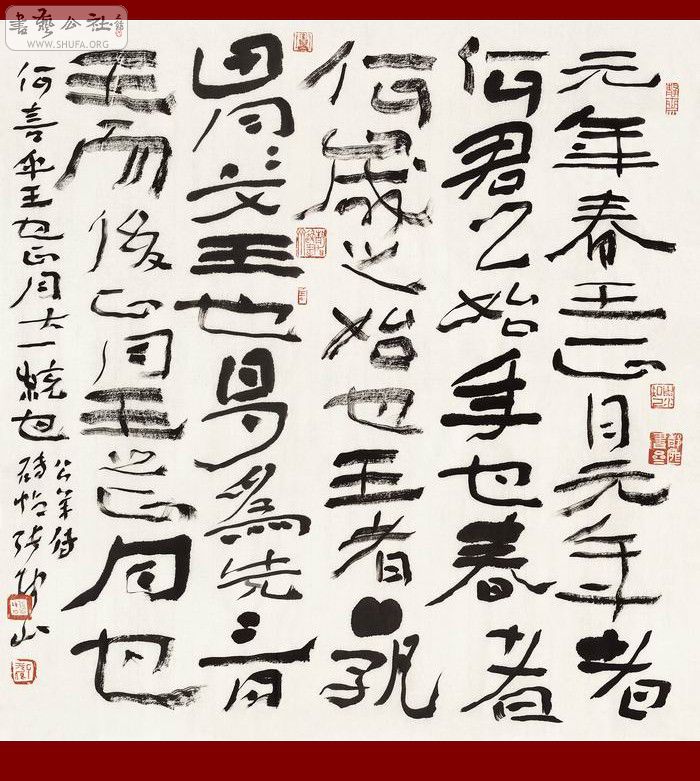 書藝公社
WWW.SHUFA.ORG
元年春王正月元年者
何君之始年也春者
何歲之始也王者孰
謂〻文王也曷為先言
王而後正月王正月也
何言乎王也正月大一統也
公羊傳